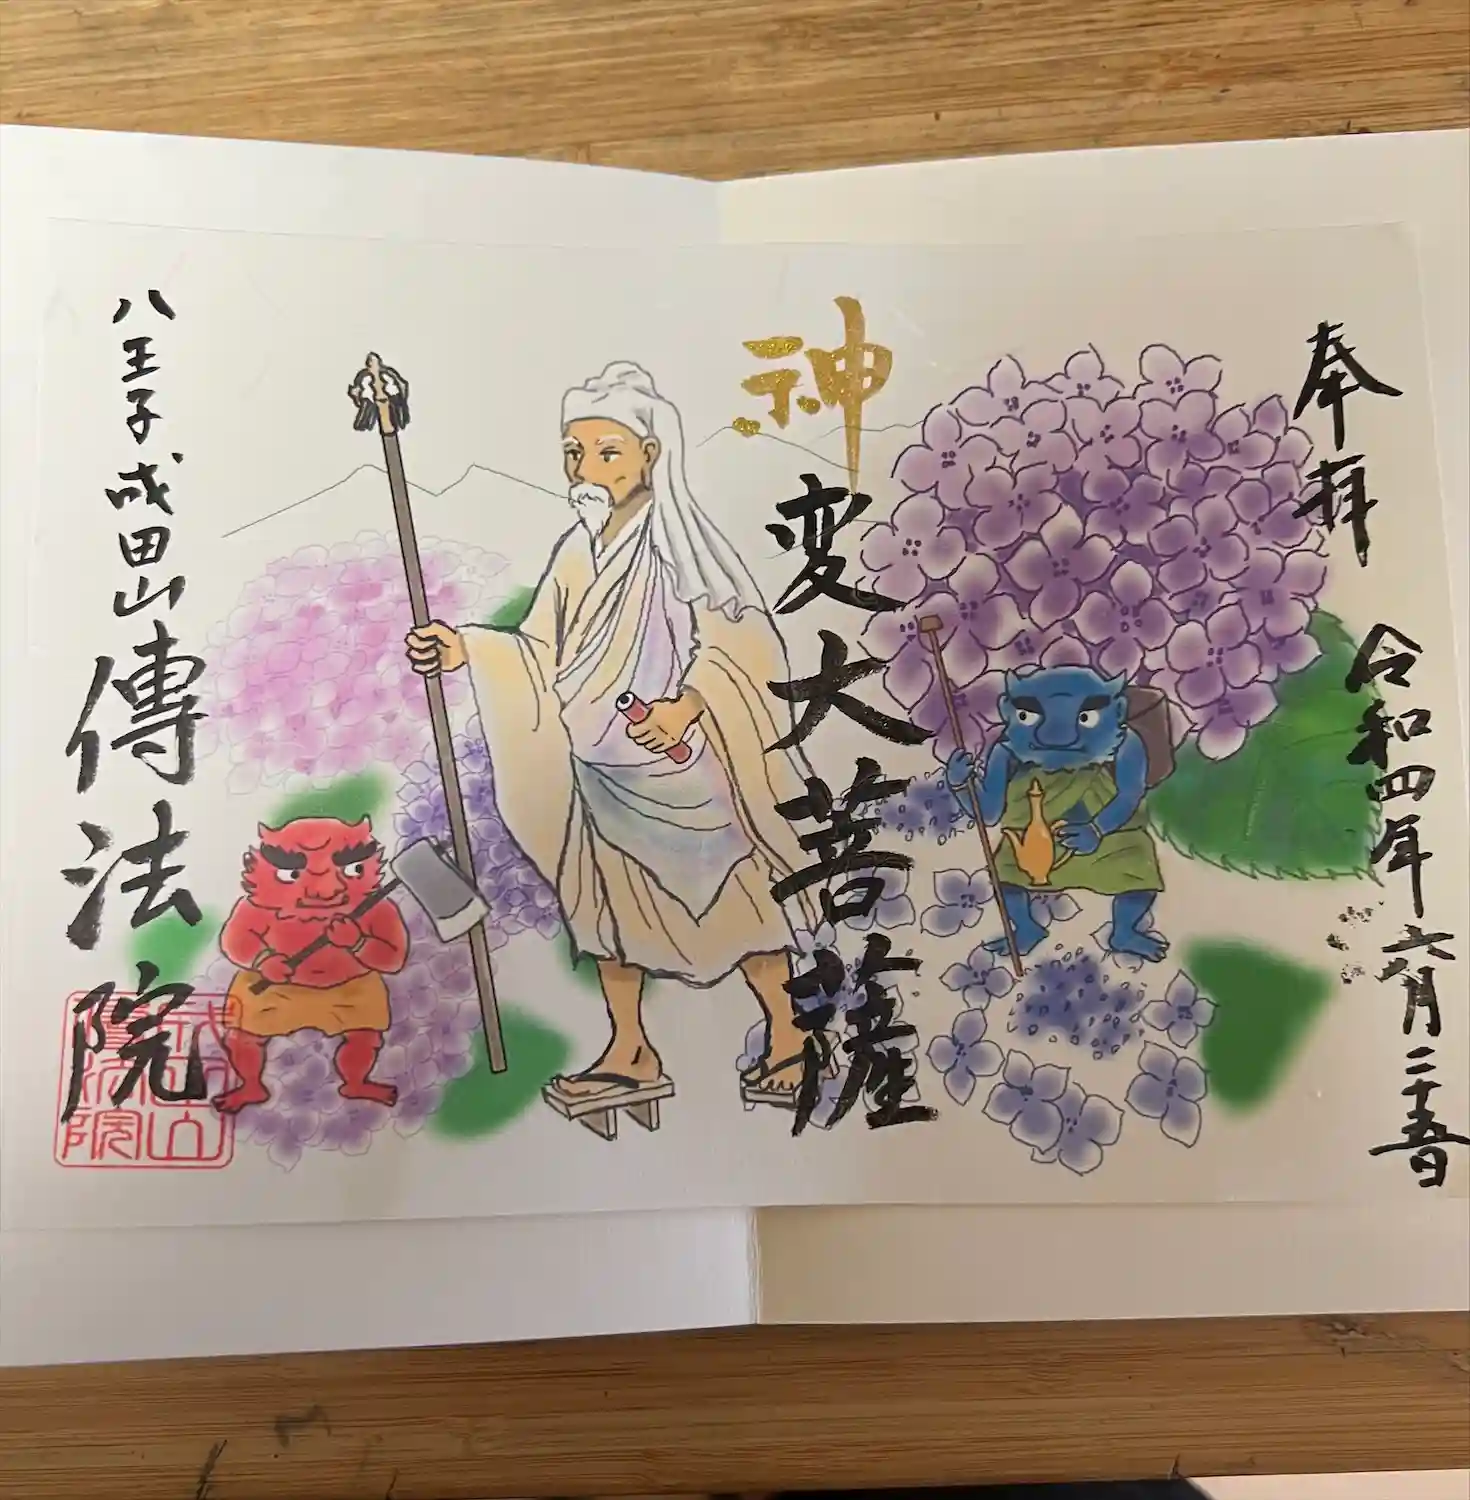 奉拝
令和四年六月二十五日
神変大菩薩
八王子成田山
傳法院